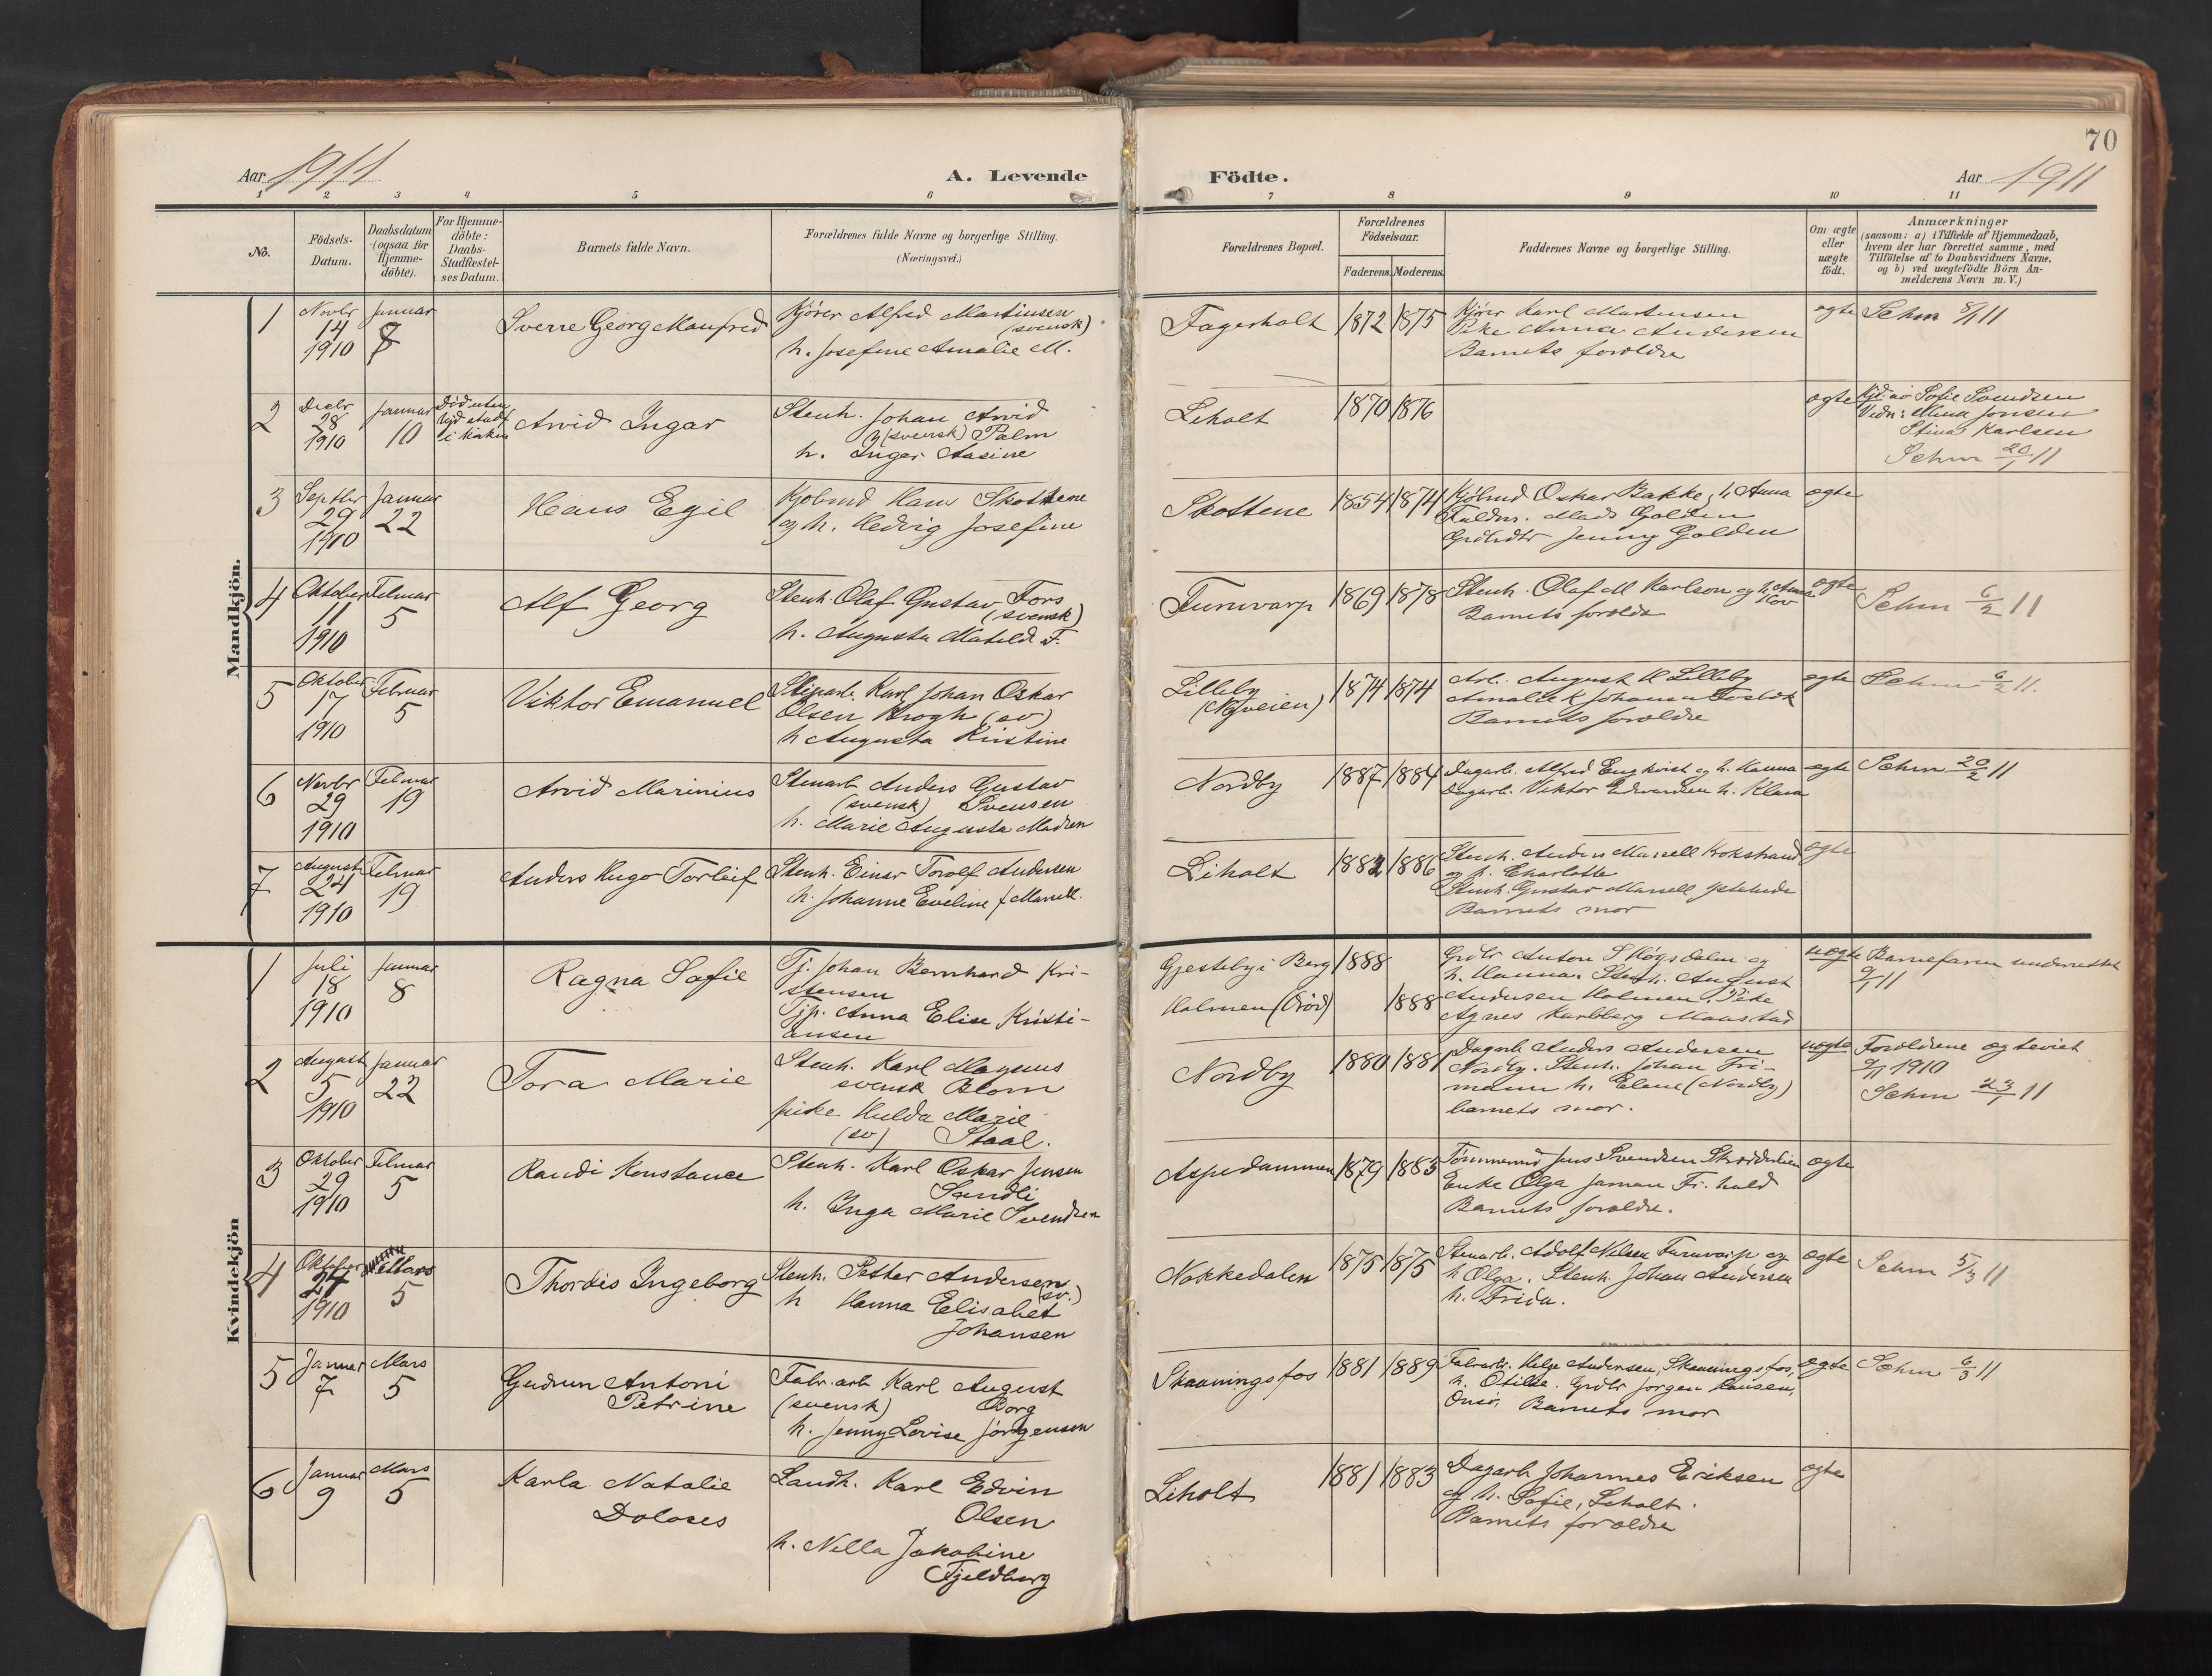 70
Aar 1911
A. Levende
Födte.
Aar 1911
1 2 3 4 5 6 7 8 9 10 11
No.
Födsels-
Datum.
Daabsdatum
(ogsaa for
Hjemme-
döbte).
For Hjemme-
döbte:
Daabs-
Stadfæstel-
ses Datum.
Barnets fulde Navn.
Forældrenes fulde Navne og borgerlige Stilling.
(Næringsvei.)
Forældrenes Bopæl.
Forældrenes
Födselsaar.
Faderens. Moderens.
Faddernes Navne og borgerlige Stilling.
Om ægte
eller
uægte
födt.
Anmærkninger
(saasom: a) i Tilfælde af Hjemmedaab,
hvem der har forrettet samme, med
Tilföielse af to Daabsvidners Navne,
og b) ved uegtefödte Börn An-
melderens Navn m. V.)
Mandkjön.
1
Novbr
14
1910
Januar
8
Sverre Georg Manfred
Kjører Alfred Martinsen
(svensk)
h. Josefine Amalie M.
Fagerholt
1872 1875
Kjører Karl Martinsen
Pike Anna Andersen
Barnets forældre
ægte
Sehm 8/1 11
2
Decbr
28
1910
Januar
10
Død uten
i kirken
Arvid Ingar
Stenh. Johan Arvid
(svensk) Palm
h. Inger Aasine
Liholt
1870 1876
ægte
Sofie Svendsen
Vidn: Alma Jonsen
Stina Karlsen
Sehm 20/1 11
3
Septbr
29
1910
Januar
22
Hans Egil
Kjøbmd Hans Skottene
og h. Hedvig Josefine
Skottene
1854 1874
Kjøbmd Oskar Bakke, h. Anna
Mads Golden
Jenny Golden
ægte
4
Oktober
11
1910
Februar
5
Alf Georg
Stenh. Olaf Gustav Fors
(svensk)
h. Augusta Matilde F.
Furuvarp
1869 1878
Stenh. Olaf M Karlson og h. Anna
Barnets forældre
ægte
Sehm 6/2 11
5
Oktober
17
1910
Februar
5
Viktor Emanuel
Sliparb. Karl Johan Oskar
Olsen Krogh (sv)
h Augusta Kristine
Lilleby
1874 1874
Arb. August H Lilleby
Barnets forældre
ægte
Sehm 6/2 11.
6
Novbr
29
1910
Februar
19
Arvid Marinius
Stenarb Anders Gustav
(svensk) Svensen
h. Marie Augusta Madsen
Nordby
1887 1884
Dagarb. Alfred Engkvist og h. Hanna
Dagarb. Viktor Edvardsen h. Klara
ægte
Sehm 20/2 11
7
August
24
1910
Februar
19
Anders Hugo Torleif
Stenh. Einar Torolf Andersen
h. Johanne Eveline f Marell.
Liholt
1882 1886
Stenh. Anders Marell Krokstrand
og h. Charlotte
Stenh. Gustav Marell
Barnets mor
ægte
Kvindekjön
1
Juli
18
1910
Januar
8
Ragna Sofie
Tj. Johan Bernhard Kri-
stensen
Tjp. Anna Elise Kristi-
ansen
Gjesteby i Berg
Holmen
1888
1888
Anton S Høgsdalen og
h. Hanna. Stenh. August
Andersen Holmen, Pike
Agnes Karlberg
uægte
Barnefaren underrettet
9/1 11
2
August
5
1910
Januar
22
Tora Marie
Stenh. Karl Magnus
svensk Blom
pike Hulda Marie
(sv) Staal.
Nordby
1880 1881
Dagarb Anders Andersen
Nordby. Stenh. Johan Fri-
mann h. Elene (Nordby)
barnets mor.
uægte
Forældrene ægteviet
1910
Sehm 23/1 11
3
Oktober
29
1910
Februar
5
Randi Konstance
Stenh. Karl Oskar Jensen
Sandli
h. Inga Marie Svendsen
Aspedammen
1879 1885
Tømmermd Jens Svendsen
Enke Olga
Barnets forældre.
ægte
4
Oktober
24
1910
Mars
5
Thordis Ingeborg
Stenh. Petter Andersen
(sv.)
h Hanna Elisabet
Johansen
Nokkedalen
1875 1875
Stenarb. Adolf Nilsen Furuvarp og
h Olga. Stenh. Johan Andersen
h. Frida.
ægte
Sehm 5/3 11
5
Januar
7
Mars
5
Gudrun Antoni
Petrine
Fabr.arb Karl August
(svensk) Borg
h. Jenny Lovise Jørgensen
Skaaningsfos
1881 1889
Fabrarb. Helge Andersen, Skaaningsfos,
h. Otilde. Grdbr Jørgen Hansen,
Onsø, Barnets mor
ægte
Sehm 6/3 11
6
Januar
9
Mars
5
Karla Natalie
Dolores
Landh. Karl Edvin
Olsen
h. Nella Jakobine
Fjeldberg
Liholt
1881 1883
Dagarb Johannes Eriksen
og h. Sofie, Liholt.
Barnets forældre
ægte